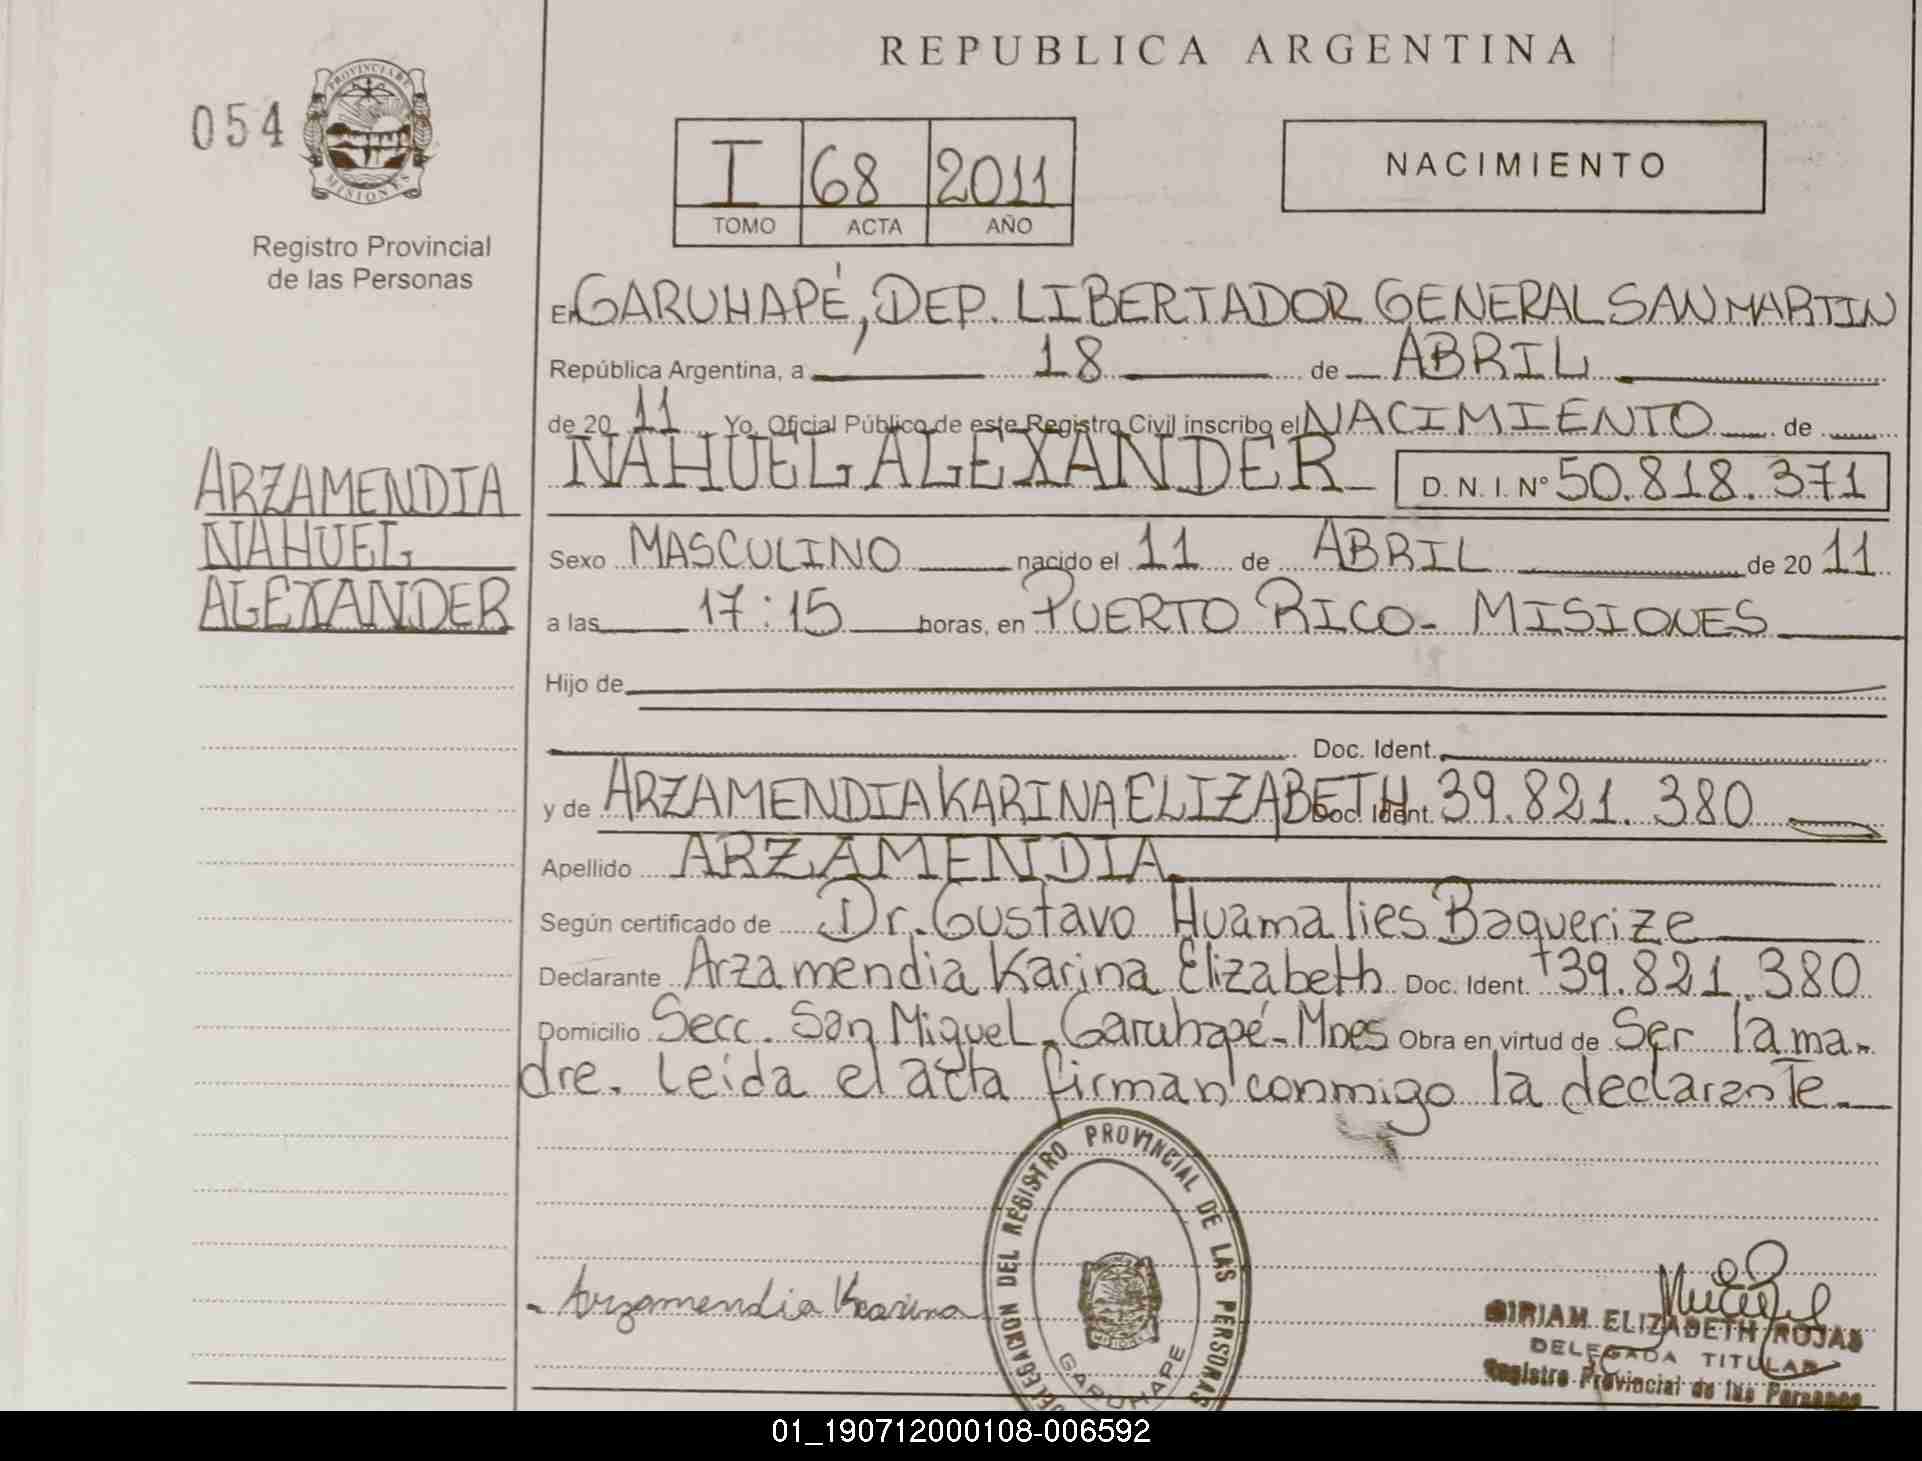 REPUBLICA ARGENTINA
054
PROVINCIA DE
MISIONES
Registro Provincial
de las Personas
I 68 2011
TOMO ACTA AÑO
NACIMIENTO
En GARUHAPÉ, DEP. LIBERTADOR GENERAL SAN MARTIN
República Argentina, a 18 de ABRIL
de 20 11 Yo, Oficial Público de este Registro Civil inscribo el NACIMIENTO de
NAHUEL ALEXANDER D. N. I. Nº 50.818.371
ARZAMENDIA
NAHUEL
ALEXANDER
Sexo MASCULINO nacido el 11 de ABRIL de 20 11
a las 17:15 horas, en PUERTO RICO - MISIONES
Hijo de
Doc. Ident.
y de ARZAMENDIA KARINA ELIZABETH Doc. Ident. 39.821.380
Apellido ARZAMENDIA
Según certificado de Dr. Gustavo Huamalies Baquerize
Declarante Arzamendia Karina Elizabeth Doc. Ident. 39.821.380
Domicilio Secc. San Miguel - Garuhapé - Mnes Obra en virtud de Ser la ma-
dre. Leída el acta firman conmigo la declarante.
DELEGACION DEL REGISTRO PROVINCIAL DE LAS PERSONAS
GARUHAPE
Arzamendia Karina
MIRIAM ELIZABETH ROJAS
DELEGADA TITULAR
Registro Provincial de las Personas
01_190712000108-006592